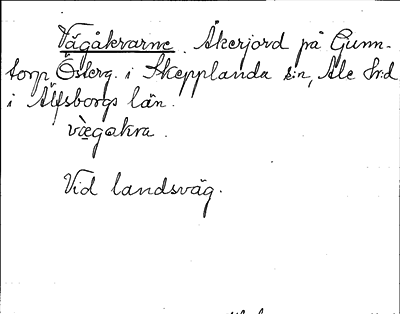 Vägåkrarne. Åkerjord på Gunn-
torp Österg. i Skepplanda s:n, Ale hrd
i Älfsborgs län.
væ̀gakra.
Vid landsväg.